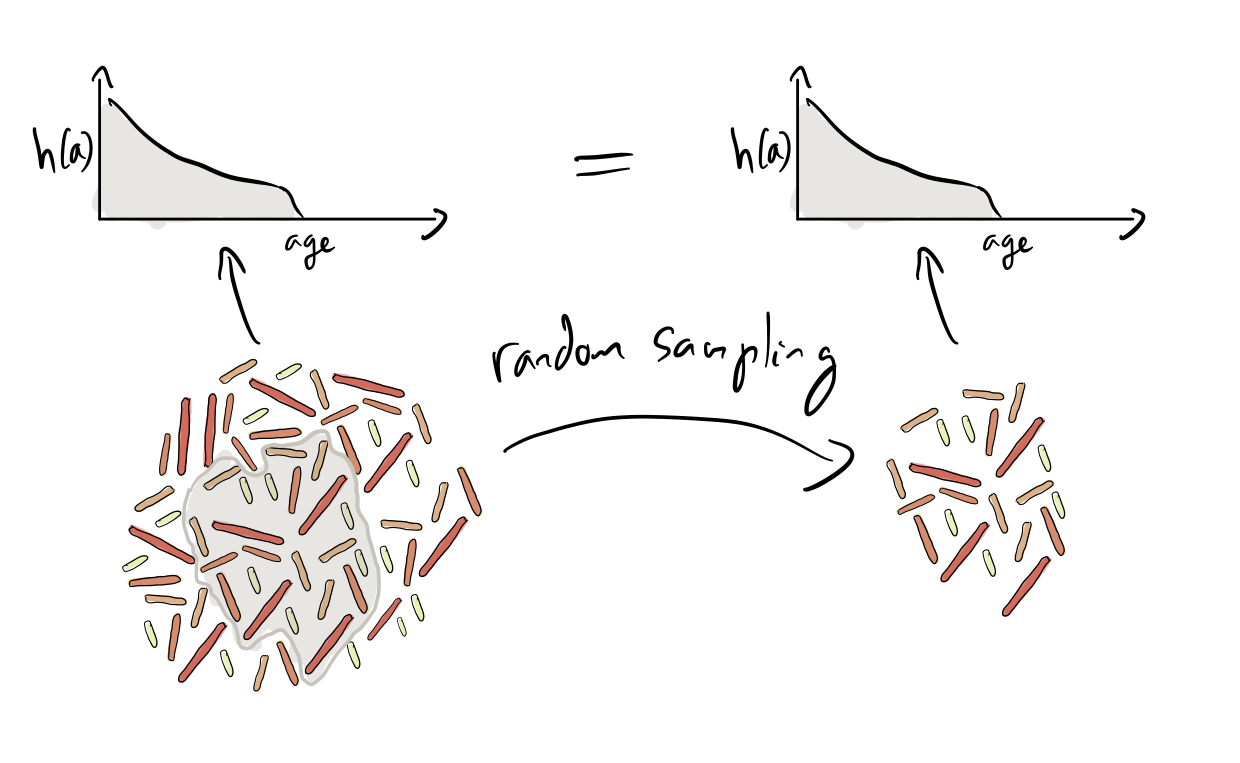 h(a)
age
=
h(a)
age
random sampling